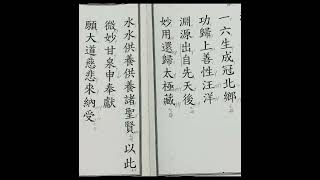 一六生成冠北鄉
功歸上善性汪洋
淵源出自先天後
妙用還歸太極藏
水水供養供養諸聖賢 以此
微妙甘泉申奉獻
願大道慈悲來納受